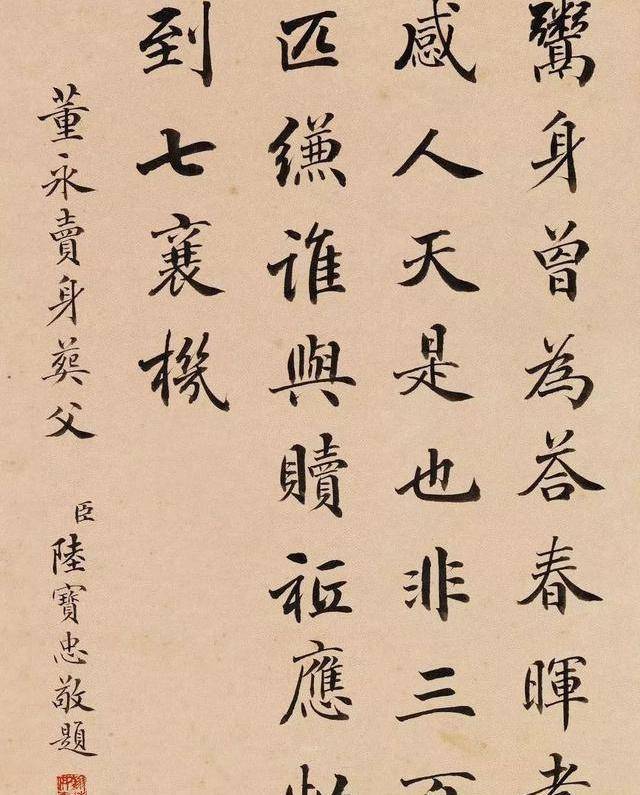 鬻身曾為答春暉孝
感人天是也非三百
匹縑誰與贖祗應
到七襄機
董永賣身葬父
臣陸寶忠敬題